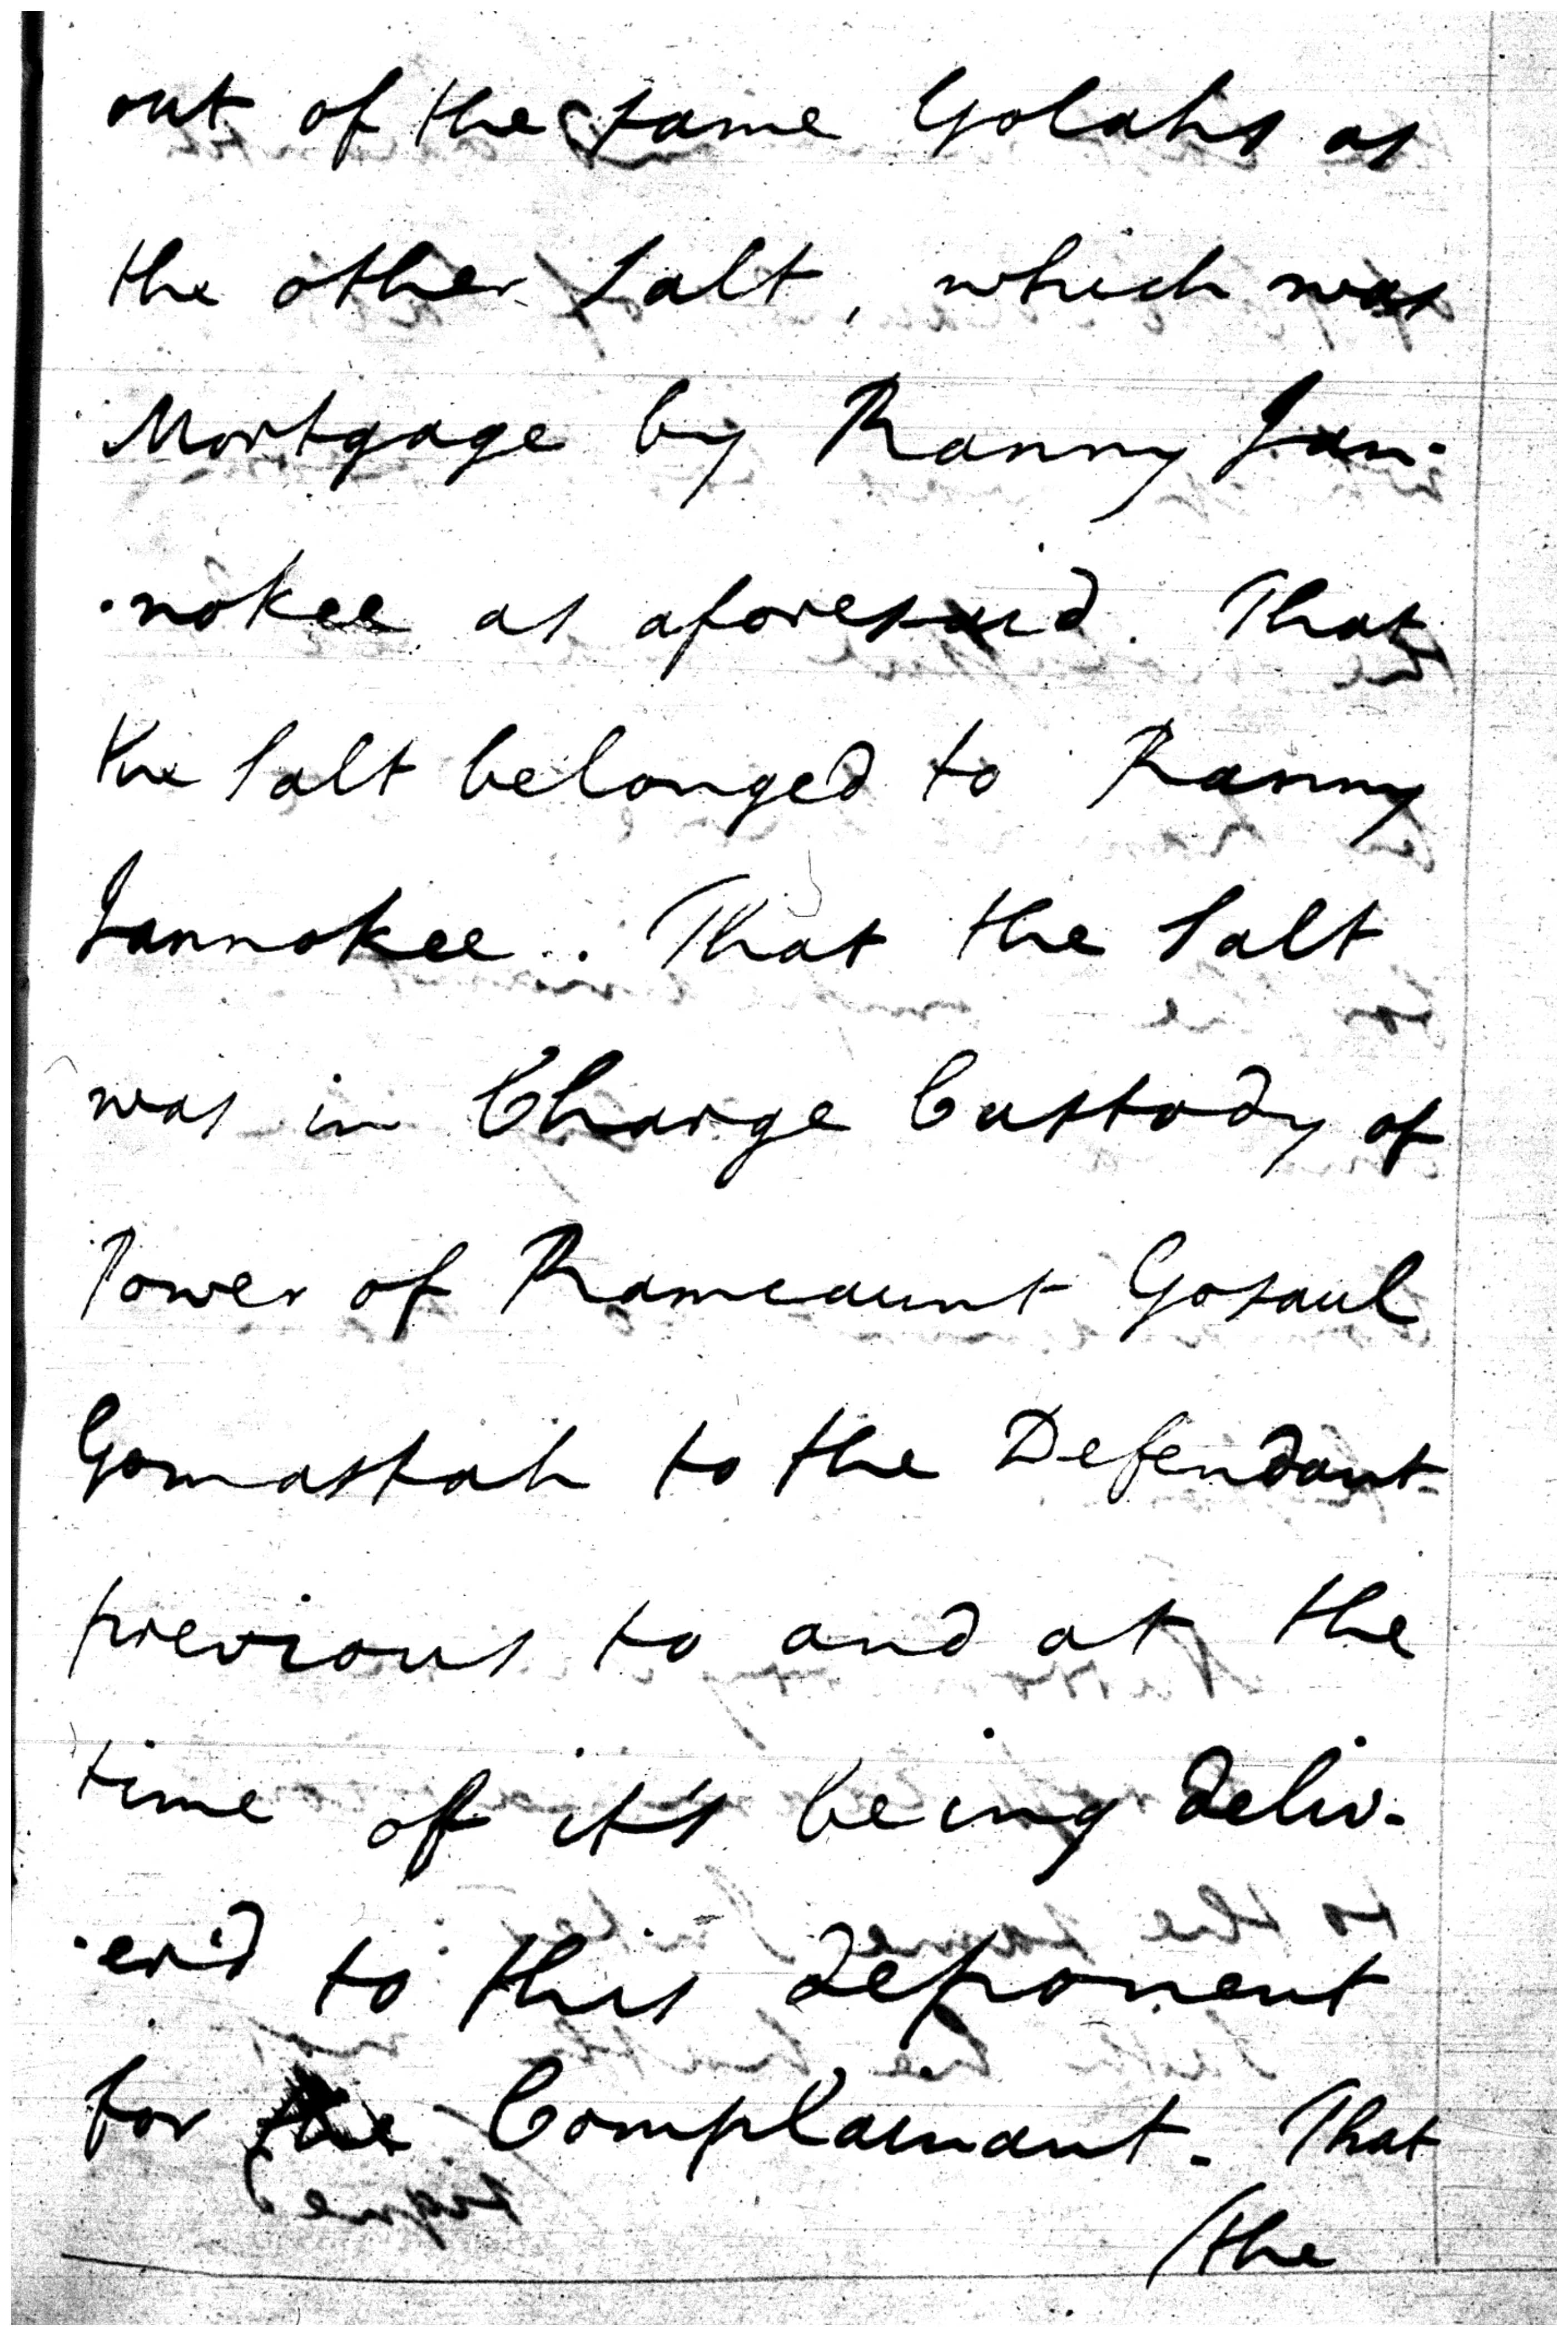 out of the same Golahs as
the other Salt, which was
Mortgage by Ranny Jan-
-nokee as aforesaid. That
the Salt belonged to Ranny
Jannokee.. That the Salt
was in Charge Custody of
Power of Ramcaunt Gosaul
Gomastah to the Defendant-
previous to and at the
time of it's being deliv-
-er'd to this deponent
for the Complainant. That
/the